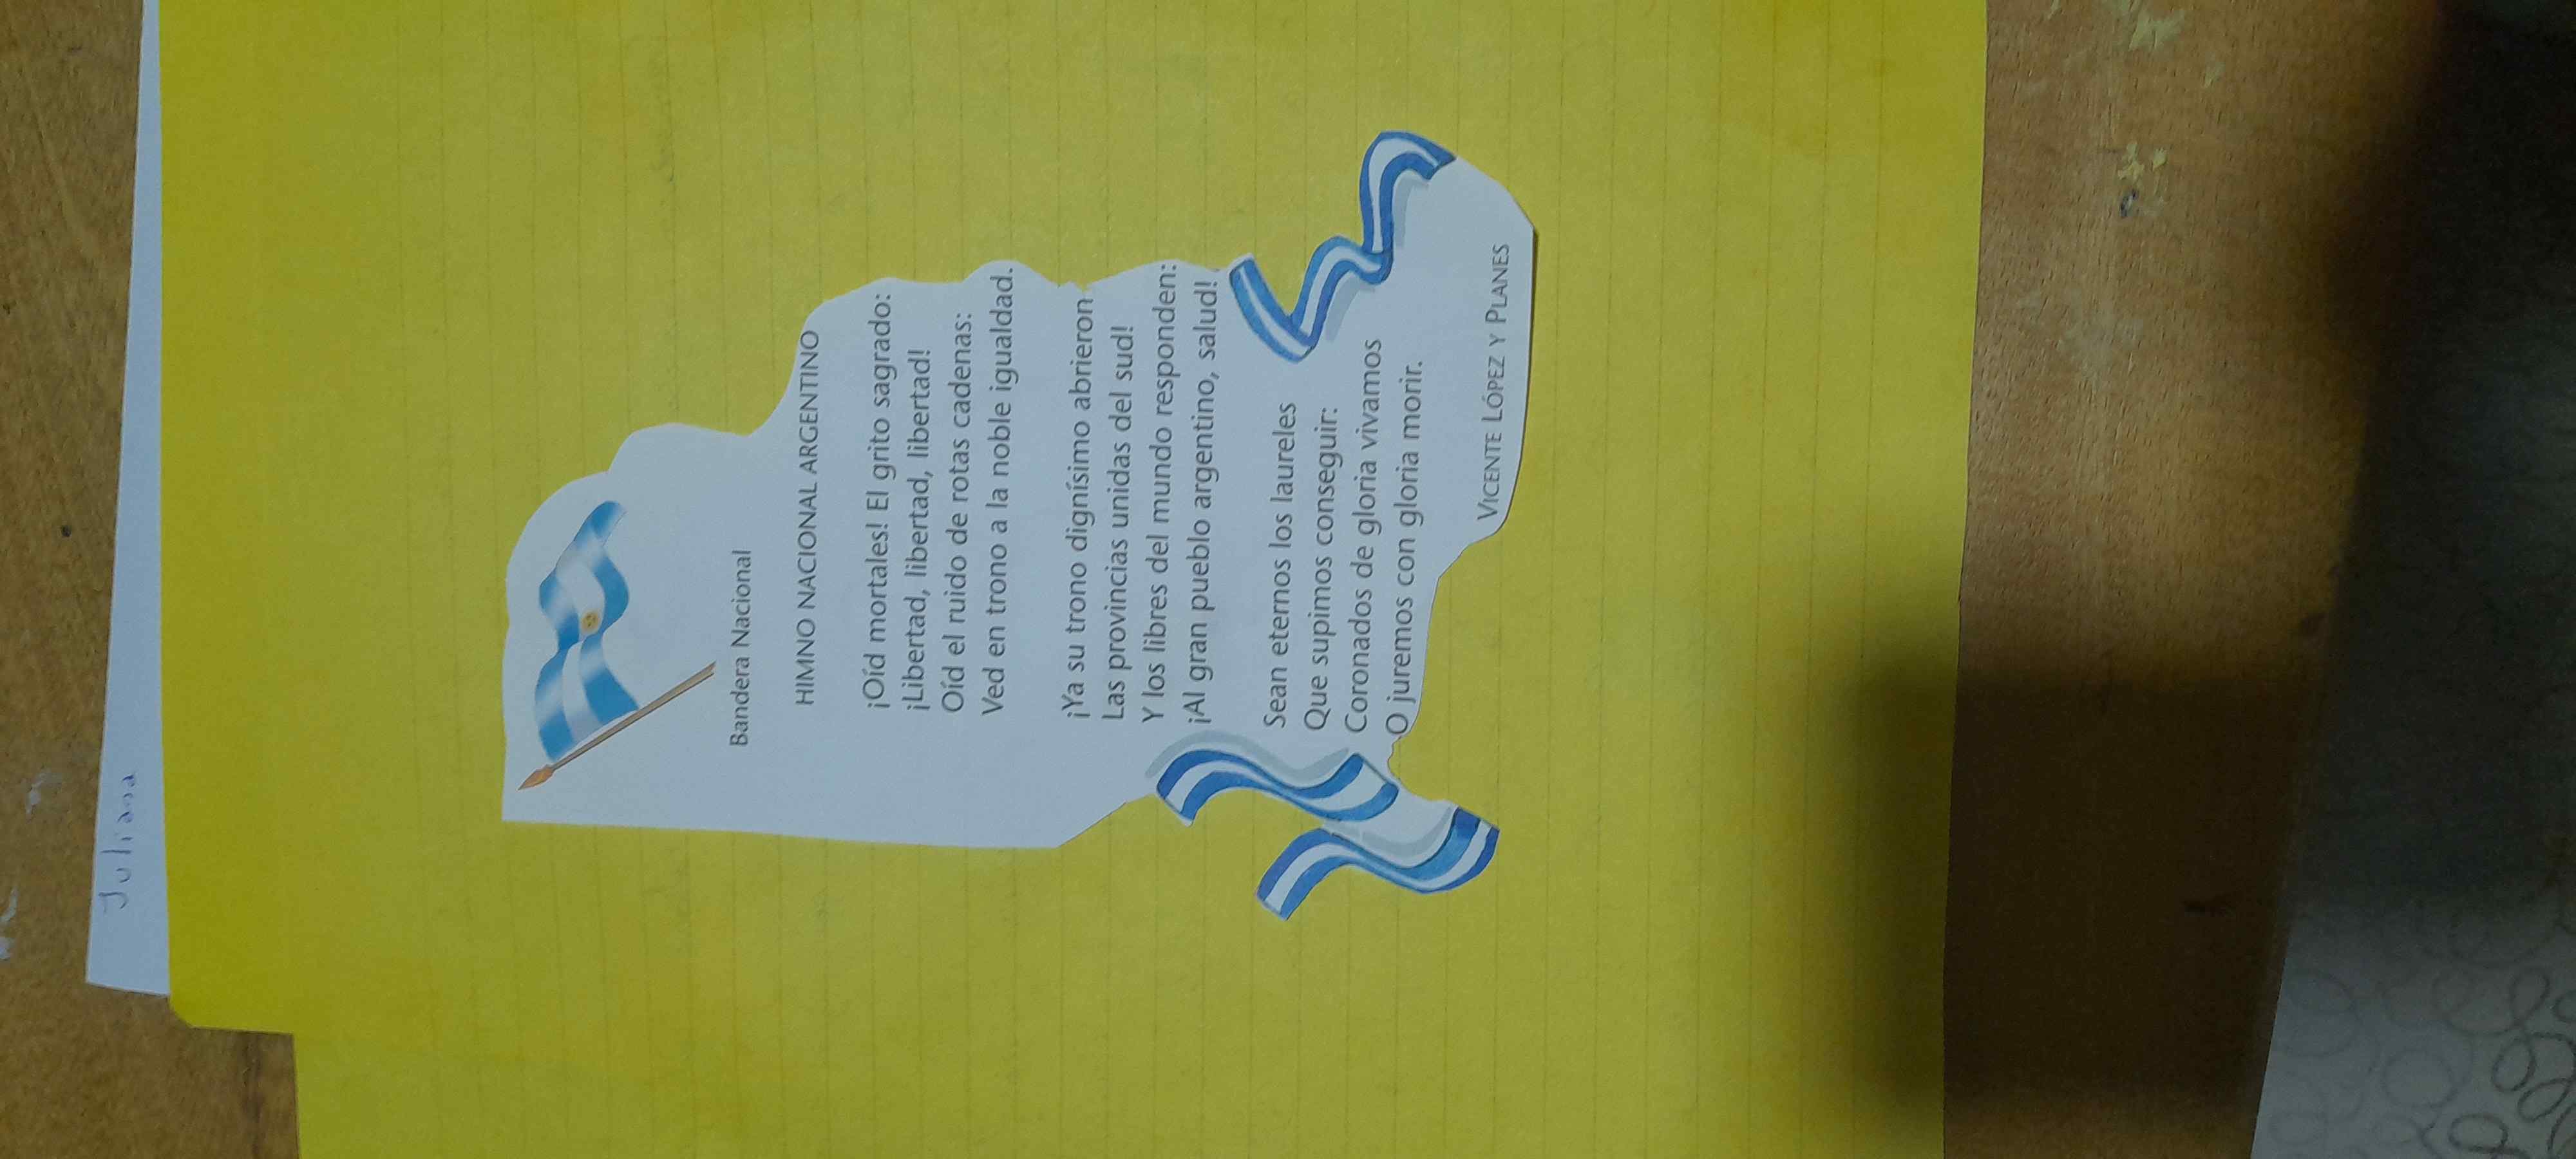 Juliana
Bandera Nacional
HIMNO NACIONAL ARGENTINO
¡Oíd mortales! El grito sagrado:
¡Libertad, libertad, libertad!
Oíd el ruido de rotas cadenas:
Ved en trono a la noble igualdad.
¡Ya su trono dignísimo abrieron
Las provincias unidas del sud!
Y los libres del mundo responden:
¡Al gran pueblo argentino, salud!
Sean eternos los laureles
Que supimos conseguir:
Coronados de gloria vivamos
O juremos con gloria morir.
VICENTE LÓPEZ Y PLANES